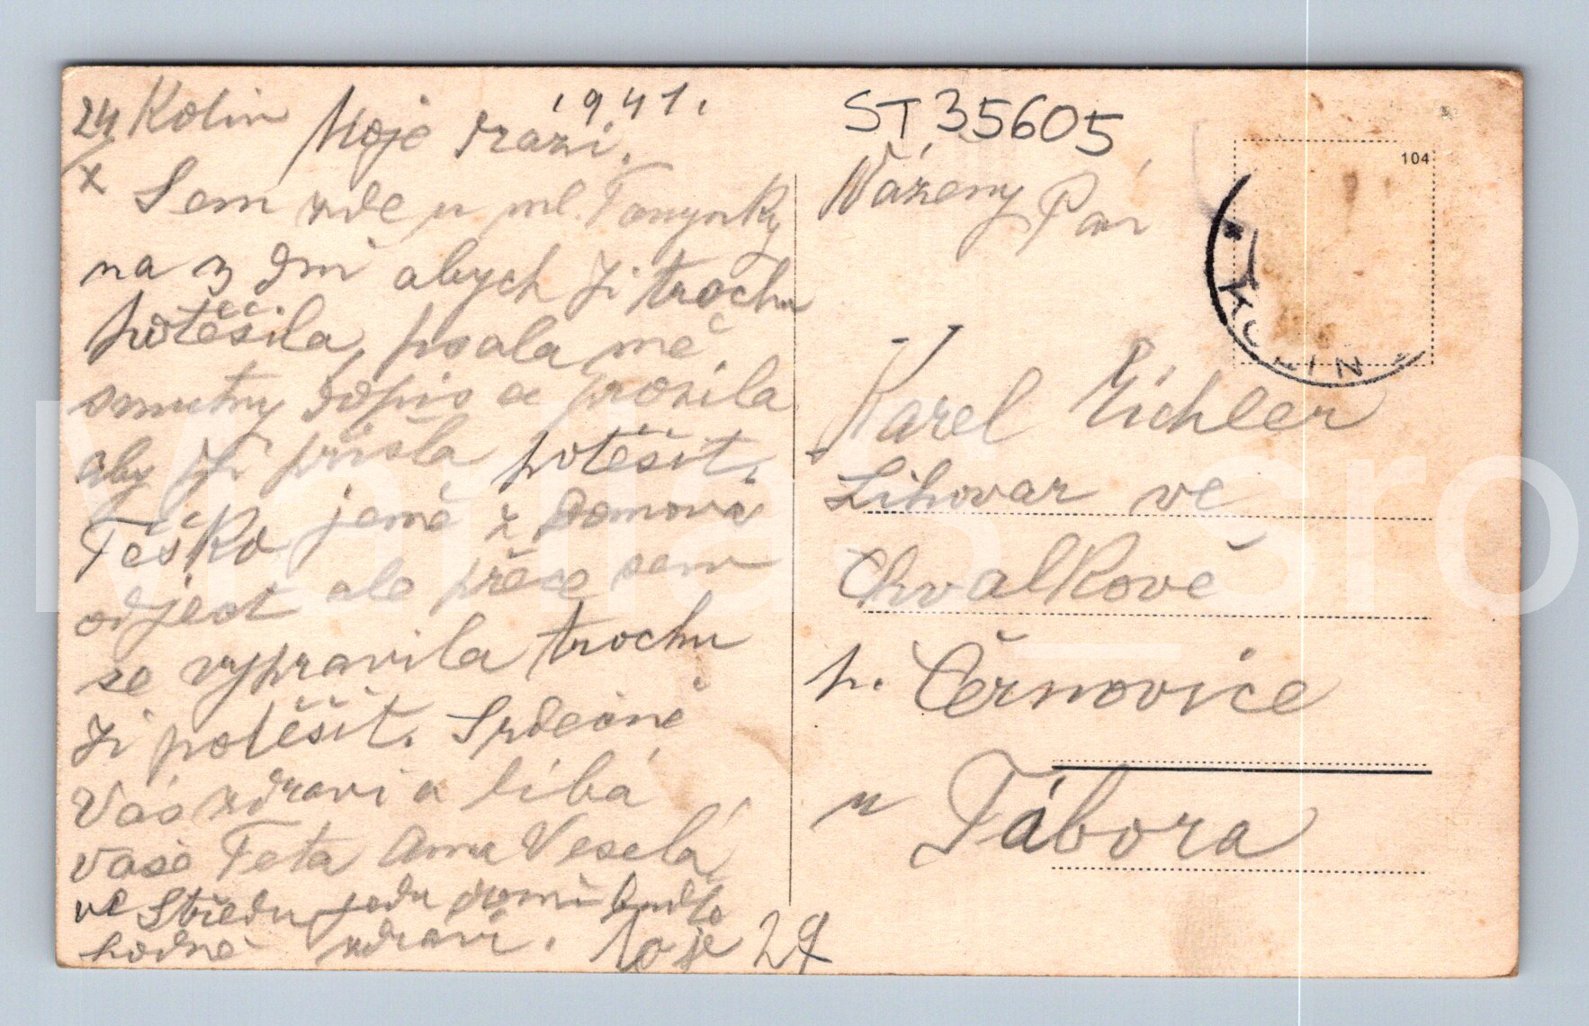 24/X Kolin 1941.
Moje drazí.
Sem zde u ml. Tonynky
na 3 dni abych ji trochu
potěšila, psala mě
smutny dopis a prosila
aby ji přišla potěšit.
Těžko jemě z Domova
odject ale přece sem
se vypravila trochu
ji potěšit. Srdečně
Vás zdravi a líbá
vaše Teta Anna Veselá
ve Středu jedu domů buďte
hodně zdravi. To je 29
ST 35605
Vážený Pán
Karel Eichler
Lihovar ve
Chvalkově
p. Černovice
u Tábora
104
KOLIN
Mallas_sro